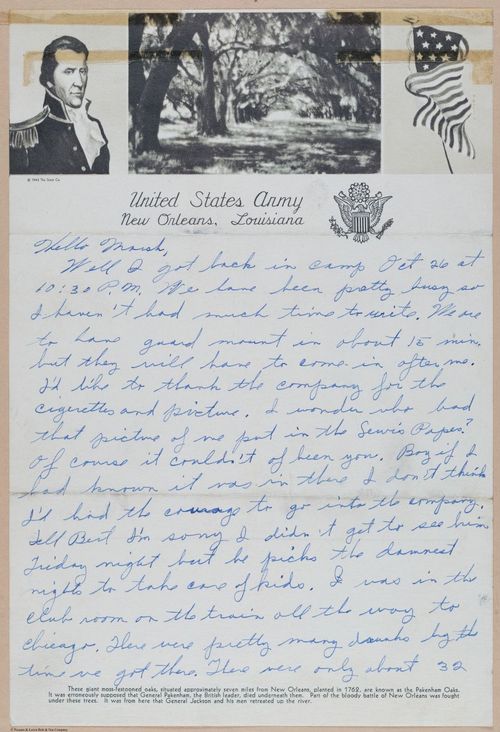 © 1942 The Scene Co.
United States Army
New Orleans, Louisiana
Hello Marsh,
Well I got back in camp Oct 26 at
10:30 P.M. We have been pretty busy so
I haven't had much time to write. We are
to have guard mount in about 15 min.
but they will have to come in after me.
I'd like to thank the company for the
cigerettes and picture. I wonder who had
that picture of me put in the Lewis Paper?
Of course it couldn't of been you. Boy if I
had known it was in there I don't think
I'd had the courage to go into the company.
Tell Bert I'm sorry I didn't get to see him
Friday night but he picks the damnest
nights to take care of kids. I was in the
club room on the train all the way to
Chicago. There were pretty many drunks by the
time we got there. There were only about 32
These giant moss-festooned oaks, situated approximately seven miles from New Orleans, planted in 1762, are known as the Pakenham Oaks.
It was erroneously supposed that General Pakenham, the British leader, died underneath them. Part of the bloody battle of New Orleans was fought
under these trees. It was from here that General Jackson and his men retreated up the river.